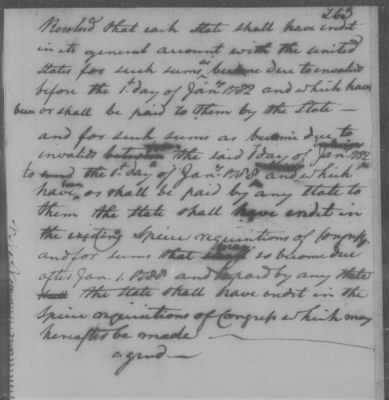 263
Resolved that each State shall have credit
in its general account with the united
States for such sums as became due to invalids
before the 1st day of Jany 1782 and which have
been or shall be paid to them by the State —
and for such sums as became due to
invalids the said 1st day of Jany 1782
to the 1st day of Jany 1788 and which
have been or shall be paid by any state to
them the state shall have credit in
the existing Specie requisitions of Congress
and for sums that so become due
after Jan. 1. 1788 and paid by any state
the State shall have credit in the
Specie requisitions of Congress which may
hereafter be made
agreed —